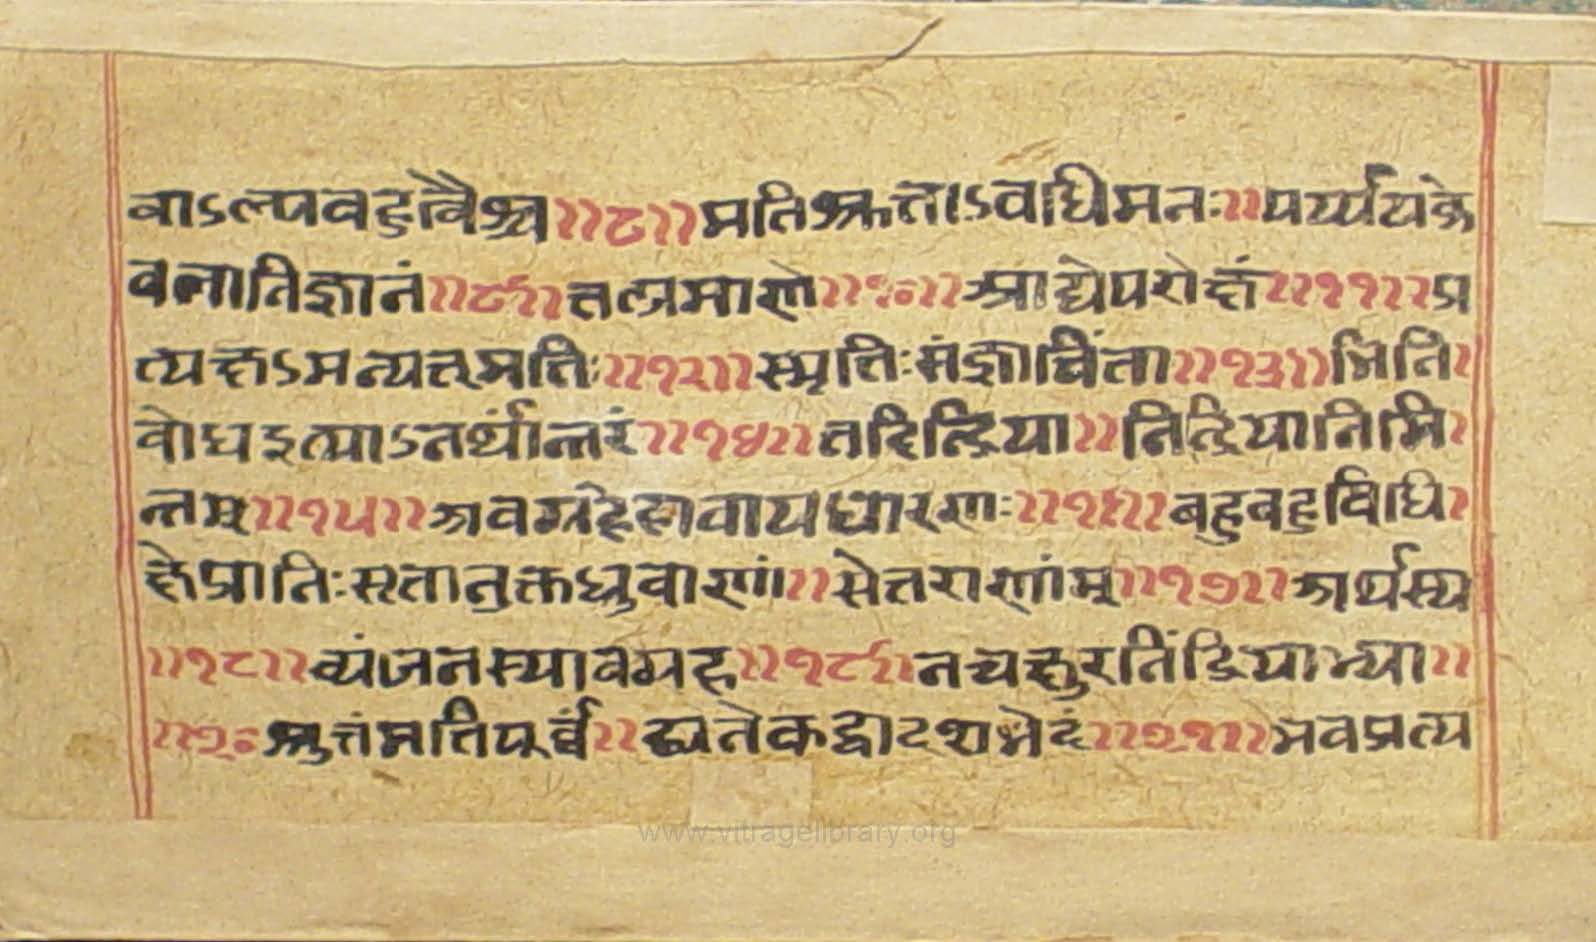 वाऽल्पवहुत्वैश्च॥८॥मतिश्रुत्ताऽवधिमनः॥पर्य्ययके
वलातिज्ञानं॥९॥त्तत्प्रमाणे॥१०॥आद्येपरोक्षं॥११॥प्र
त्यक्षऽमन्यत्त्मत्तिः॥१२॥स्मृत्तिःसंज्ञाचिंता॥१३॥भिति।
वोधइत्याऽनर्थान्तरं॥१४॥तदिन्द्रिया॥निंद्रियानिमि।
न्तम्॥१५॥अवग्रहेहावायधारणाः॥१६॥बहुबहुविधि।
क्षेप्रातिःसतानुक्तध्रुवाणां॥सेत्तराणांम्॥१७॥अर्थस्य
॥१८॥व्यंजनस्यावग्रह॥१९॥नचक्षुरनिंद्रियाभ्या॥
॥२०श्रुत्तंमतिपूर्वं॥द्व्यनेकद्वादशभेदं॥२१॥भवप्रत्य
www.vitragelibrary.org